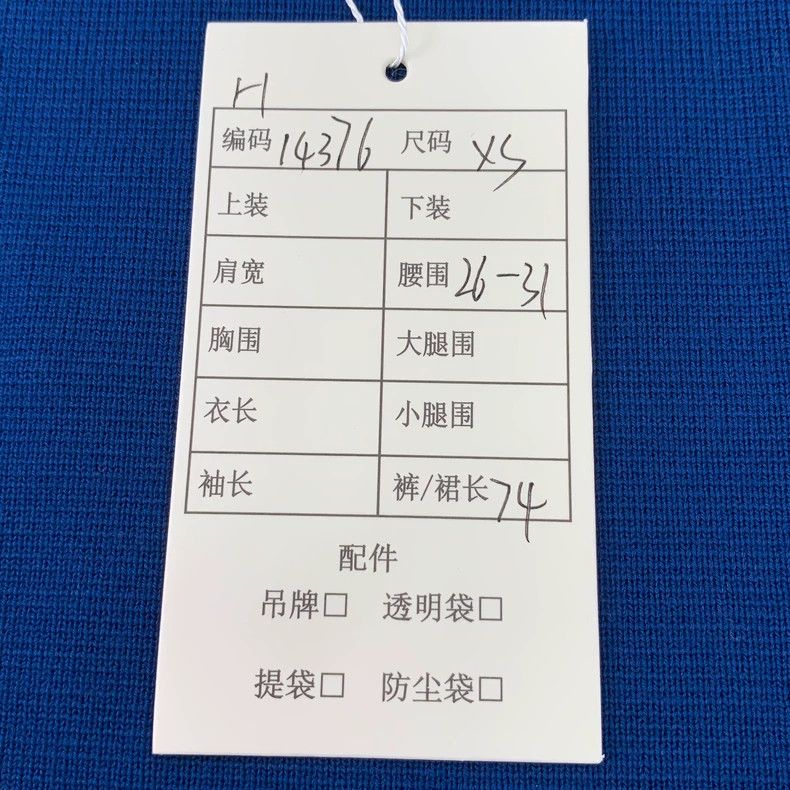 H
编码 14376 尺码 XS
上装 下装
肩宽 腰围 26-31
胸围 大腿围
衣长 小腿围
袖长 裤/裙长 74
配件
吊牌□ 透明袋□
提袋□ 防尘袋□